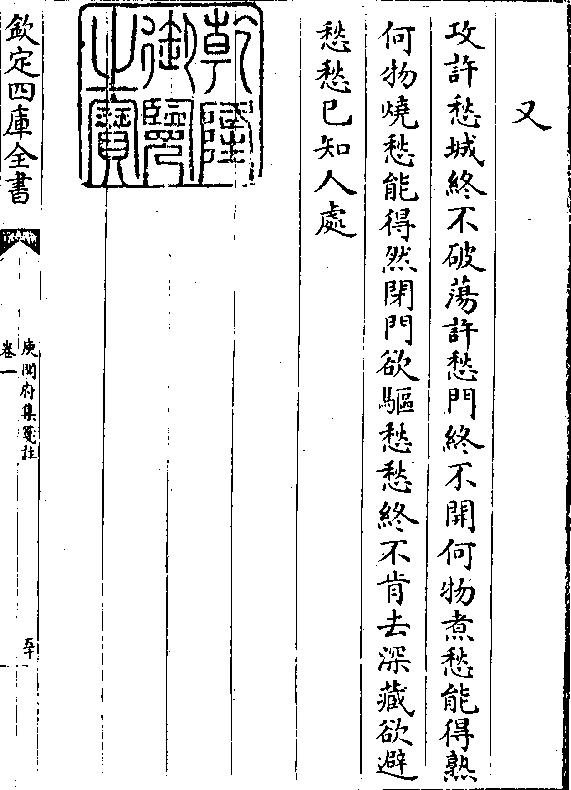 又
攻許愁城終不破蕩許愁門終不開何物煮愁能得熟
何物燒愁能得然閉門欲驅愁愁終不肯去深藏欲避
愁愁已知人處
乾隆
御覽
之寶
欽定四庫全書
庾開府集箋註
卷一